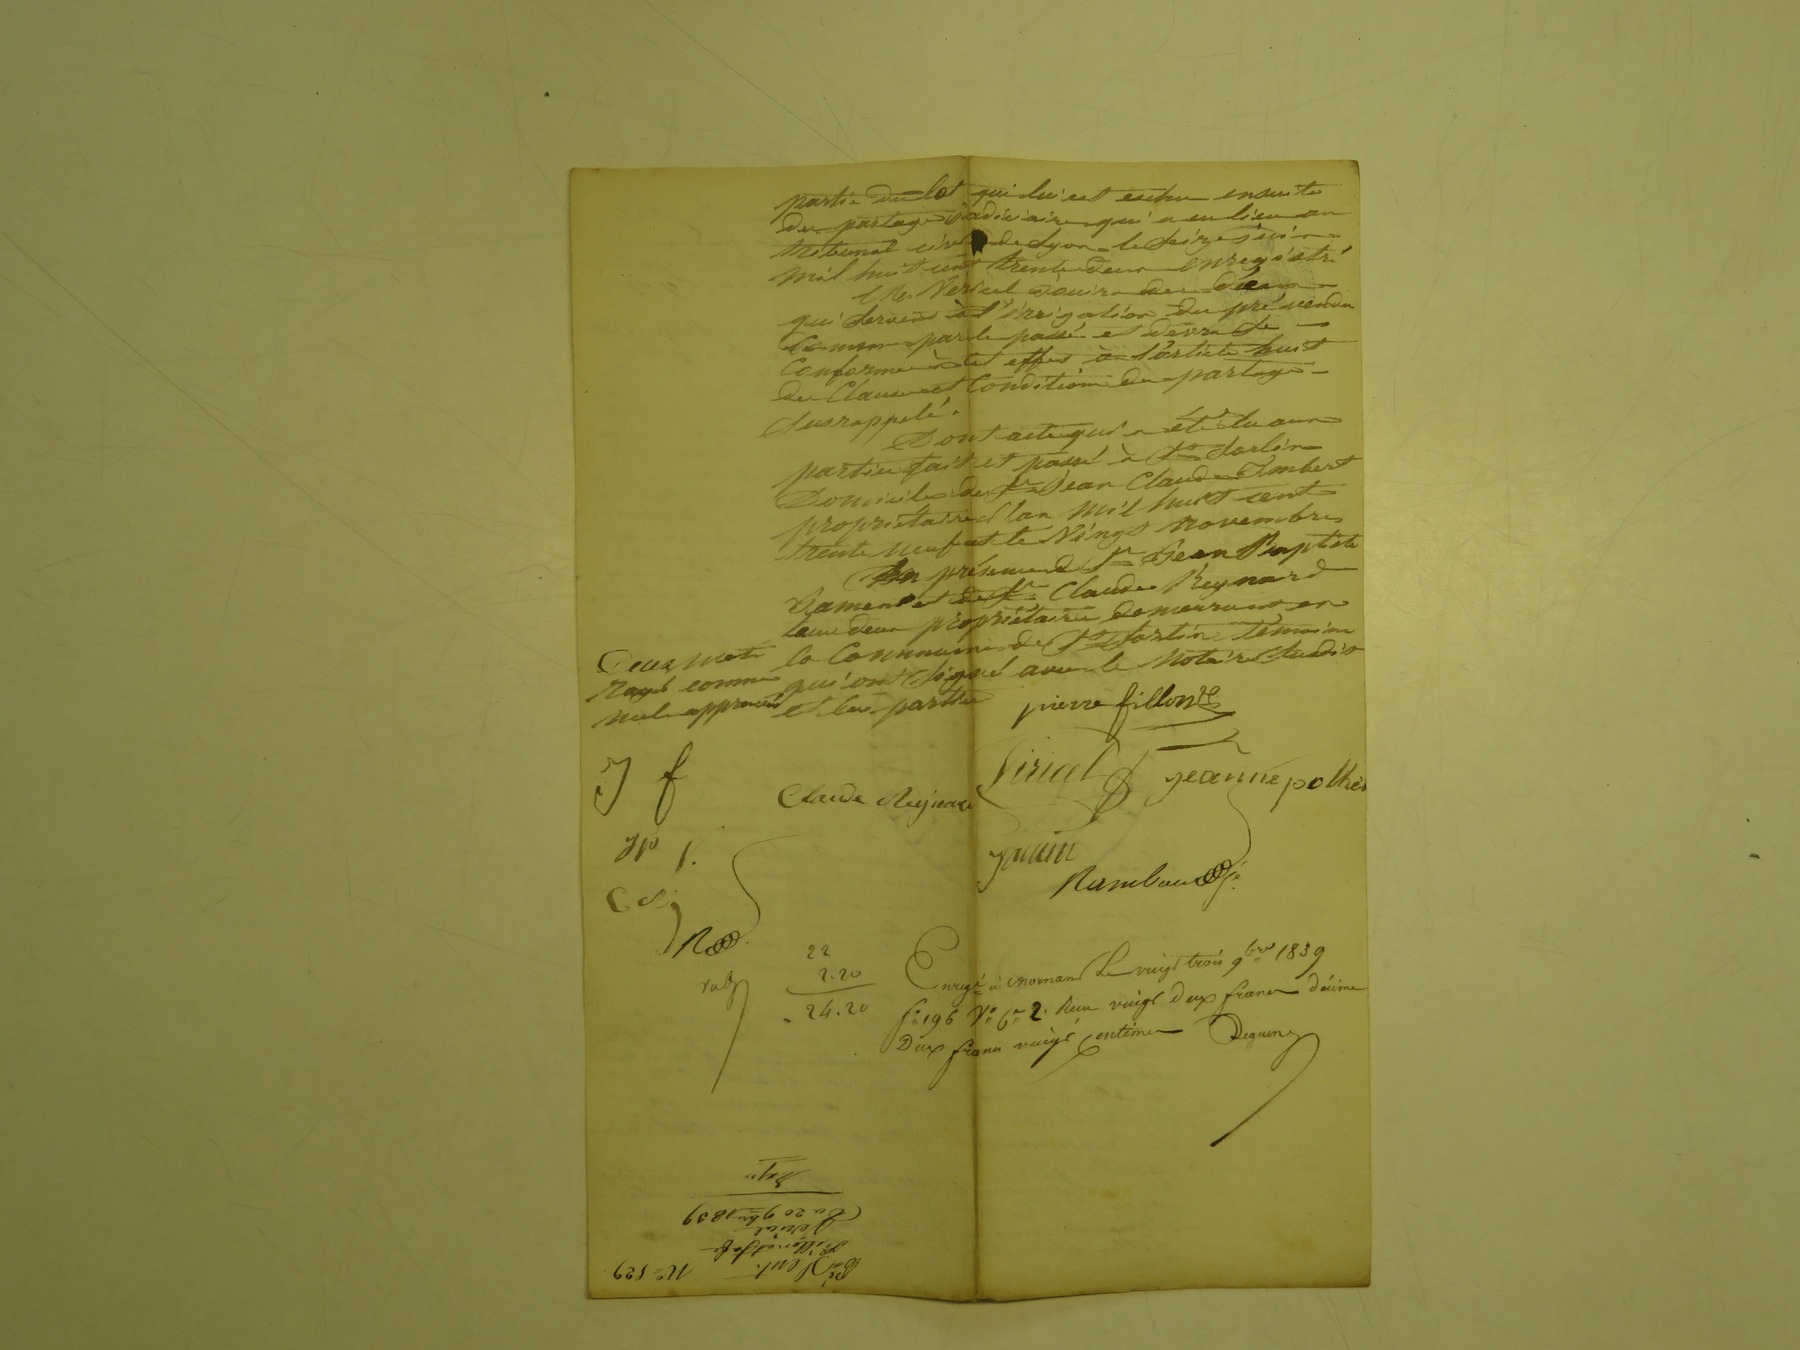 partie du lot qui lui est échu ensuite
du partage judiciaire qui a eu lieu au
tribunal civil de Lyon le seize juin
mil huit cent trente deux enregistré
Mr Vericel jouira des eaux
qui servent à l'irrigation du pré vendu
comme par le passé et devra se
conformer à cet effet à l'article huit
des clauses et conditions du partage
susrappelé.
Dont acte qui a été lu aux
parties fait et passé à St Sorlin
domicile de Sr Jean Claude Imbert
propriétaire l'an mil huit cent
trente neuf et le vingt novembre
En présence de Sr Jean Baptiste
et de Sr Claude Reynard
tous deux propriétaires demeurant en
la commune de St Sorlin témoins
qui ont signé avec le notaire susdit
et les parties
Deux mots
rayés comme
nuls approuvés
pierre fillon
Vericel
jeanne pothé
Claude Reynard
J f
jp V.
C R
Rambaud
22
2.20
24.20
Enregé à Mornant Le vingt trois 9bre 1839
fo 196 Vo Ce 2. Reçu vingt deux francs décime
Deux francs vingt centimes
No 529
Vente
Pé
Fillon et sa fe
à Vericel
Du 20 9bre 1839